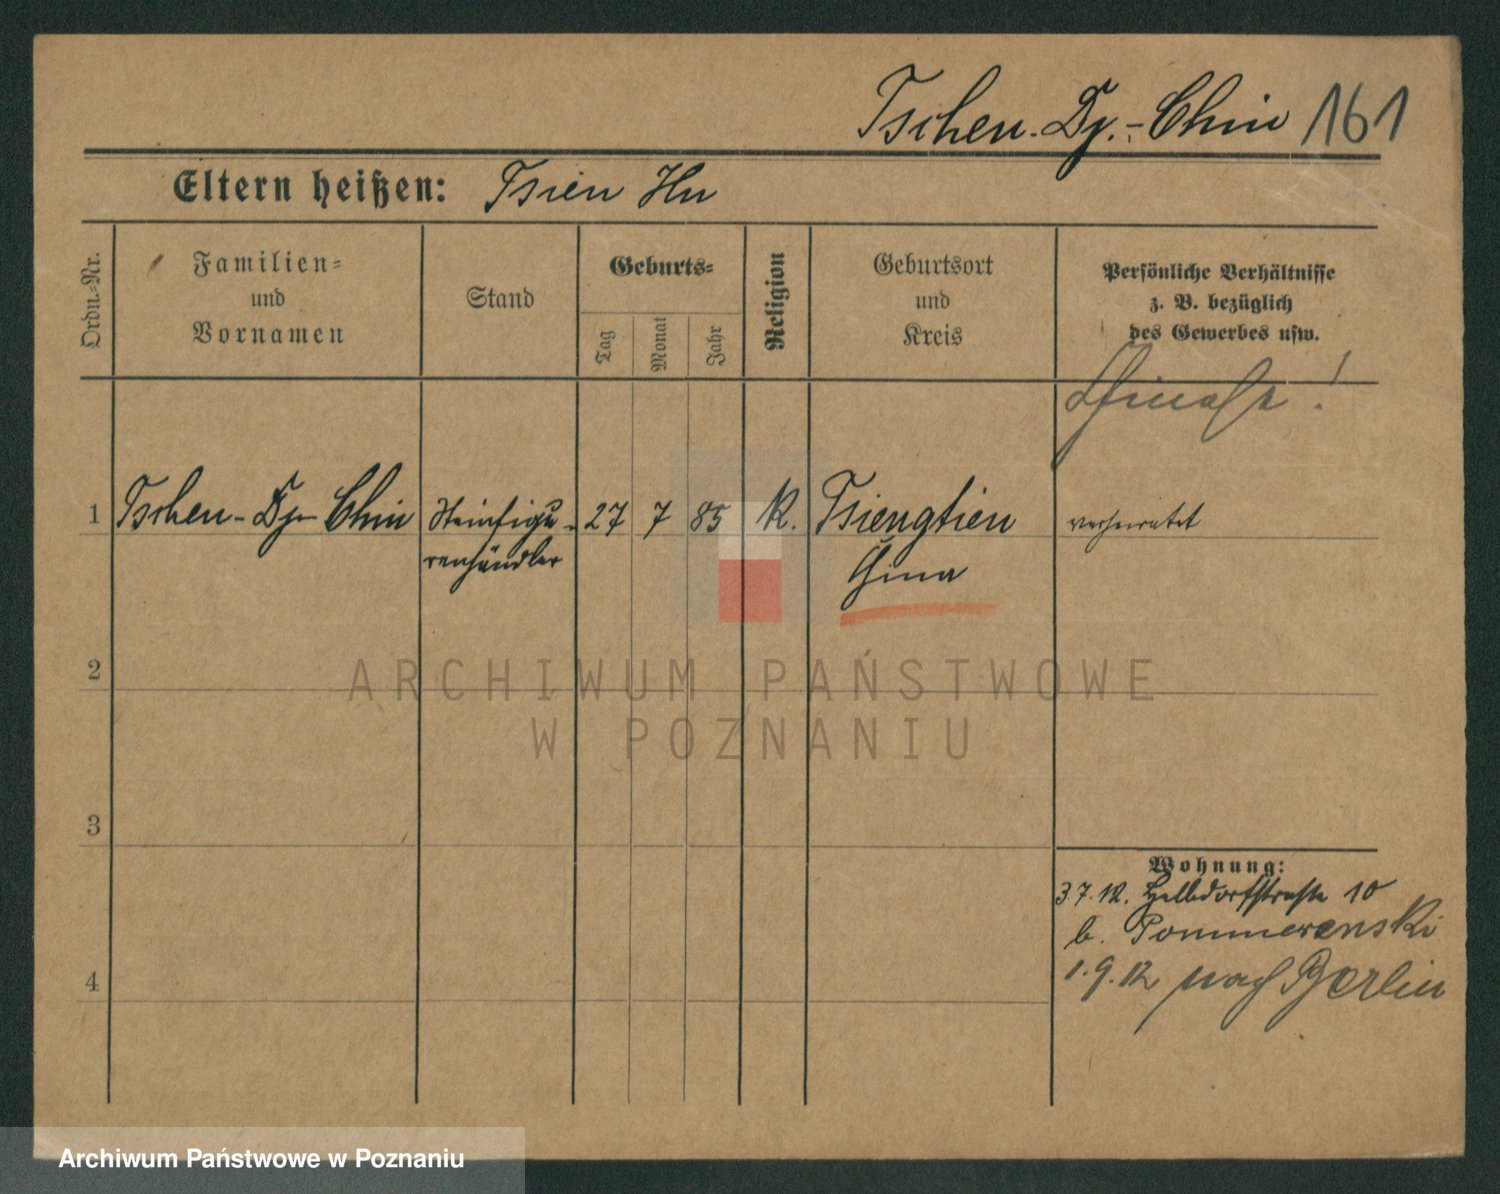 Tschen-Dy-Chin 161
Eltern heißen: Tsien Hu
Ordn.-Nr.
Familien-
und
Vornamen
Stand
Geburts-
Tag
Monat
Jahr
Religion
Geburtsort
und
Kreis
Persönliche Verhältnisse
z. B. bezüglich
des Gewerbes usw.
Chinese!
1 Tschen-Dy-Chin Steinfigu- 27 7 85 K. Tsiengtien verheiratet
renhändler China
2
ARCHIWUM PAŃSTWOWE
W POZNANIU
3
Wohnung:
3.7.12. Helldorfstraße 10
b. Pommerenski
4 1.9.12 nach Berlin
Archiwum Państwowe w Poznaniu